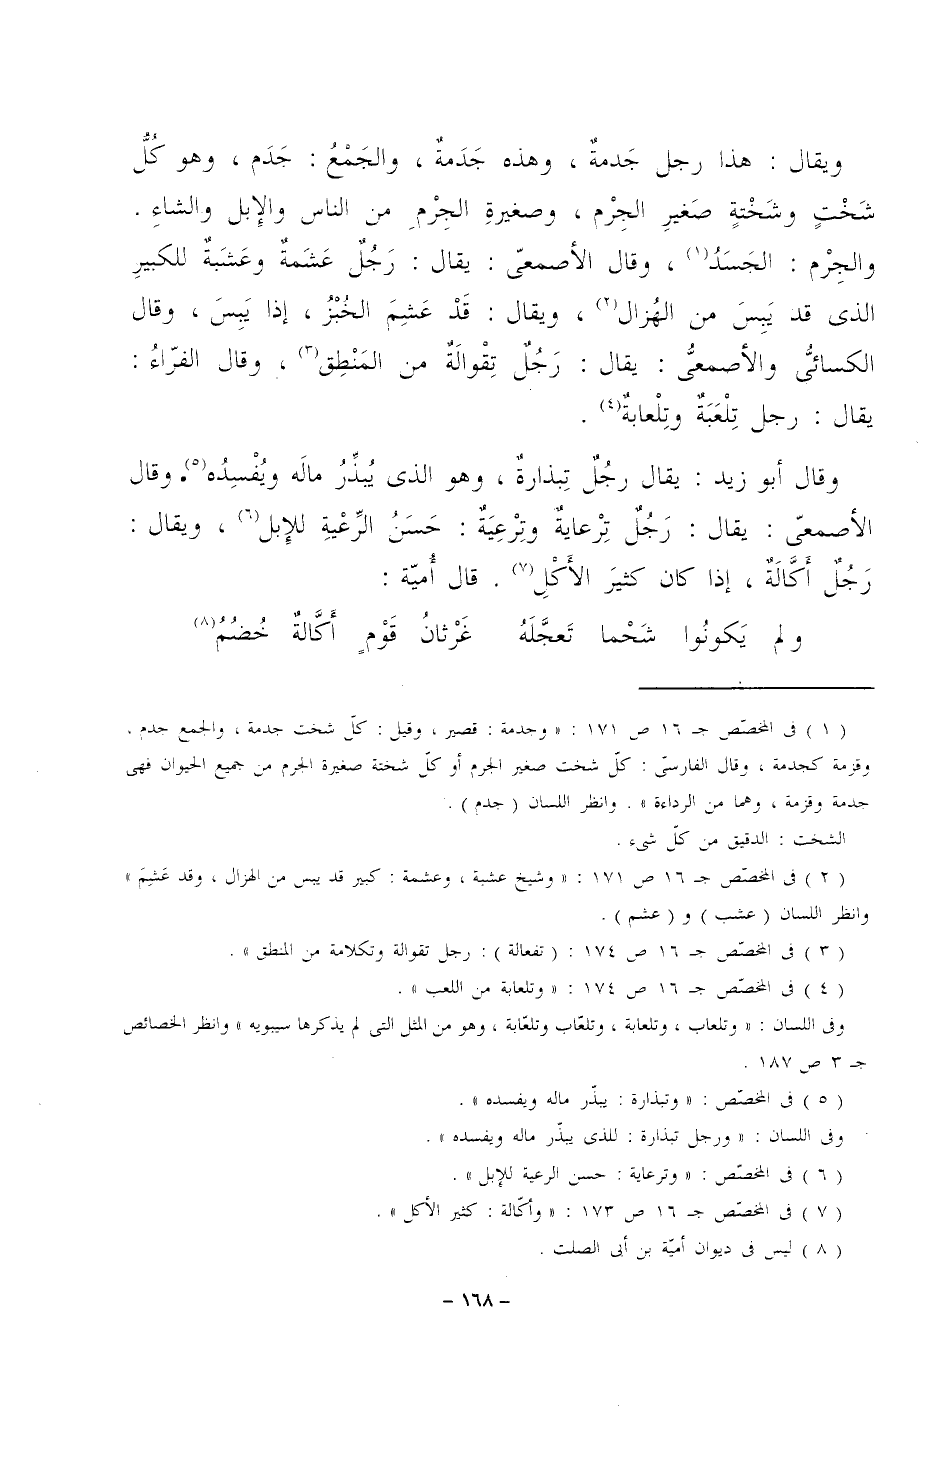 ويقال : هذا رجل جَدمةٌ ، وهذه جَدَمةٌ ، والجَمْعُ : جَدَم ، وهو كُلُّ
شَخْتٍ وشَخْتةٍ صَغيرِ الجِرْم ، وصغيرةِ الجِرْمِ من الناس والإبل والشاءِ .
والجِرْم : الجَسَدُ(١) ، وقال الأصمعىّ : يقال : رَجُلٌ عَشَمةٌ وعَشَبَةٌ للكبيرِ
الذى قد يَبِسَ من الهُزال(٢) ، ويقال : قَدْ عَشِمَ الخُبْزُ ، إذا يَبِسَ ، وقال
الكسائىُّ والأصمعىُّ : يقال : رَجُلٌ تِقْوالَةٌ من المَنْطِق(٣) ، وقال الفرّاءُ :
يقال : رجل تِلْعَبَةٌ وتِلْعابةٌ(٤) .
وقال أبو زيد : يقال رجُلٌ تِبذارةٌ ، وهو الذى يُبذِّرُ مالَه ويُفْسِدُه(٥). وقال
الأصمعىّ : يقال : رَجُلٌ تِرْعايةٌ وتِرْعِيَةٌ : حَسَنُ الرِّعْيةِ للإبل(٦) ، ويقال :
رَجُلٌ أَكَّالَةٌ ، إذا كان كثيرَ الأَكْلِ(٧) . قال أُميّة :
و لم يَكونُوا شَحْما تَعجَّلَهُ غَرْثانُ قَوْمٍ أَكَّالةٌ خُضُمُ(٨)
( ١ ) فى المخصّص جـ ١٦ ص ١٧١ : « وجدمة : قصير ، وقيل : كلّ شخت جدمة ، والجمع جدم .
وقزمة كجدمة ، وقال الفارسىّ : كلّ شخت صغير الجرم أو كلّ شختة صغيرة الجرم من جميع الحيوان فهى
جدمة وقزمة ، وهما من الرداءة » . وانظر اللسان ( جدم ) .
الشخت : الدقيق من كلّ شىء .
( ٢ ) فى المخصّص جـ ١٦ ص ١٧١ : « وشيخ عشبة ، وعشمة : كبير قد يبس من الهزال ، وقد عَشِمَ »
وانظر اللسان ( عشب ) و ( عشم ) .
( ٣ ) فى المخصّص جـ ١٦ ص ١٧٤ : ( تفعالة ) : رجل تقوالة وتكلامة من المنطق » .
( ٤ ) فى المخصّص جـ ١٦ ص ١٧٤ : « وتلعابة من اللعب » .
وفى اللسان : « وتلعاب ، وتلعابة ، وتلعّاب وتلعّابة ، وهو من المثل التى لم يذكرها سيبويه » وانظر الخصائص
جـ ٣ ص ١٨٧ .
( ٥ ) فى المخصّص : « وتبذارة : يبذّر ماله ويفسده » .
وفى اللسان : « ورجل تبذارة : للذى يبذّر ماله ويفسده » .
( ٦ ) فى المخصّص : « وترعاية : حسن الرعية للإبل » .
( ٧ ) فى المخصّص جـ ١٦ ص ١٧٣ : « وأكّالة : كثير الأكل » .
( ٨ ) ليس فى ديوان أميّة بن أبى الصلت .
– ١٦٨ –